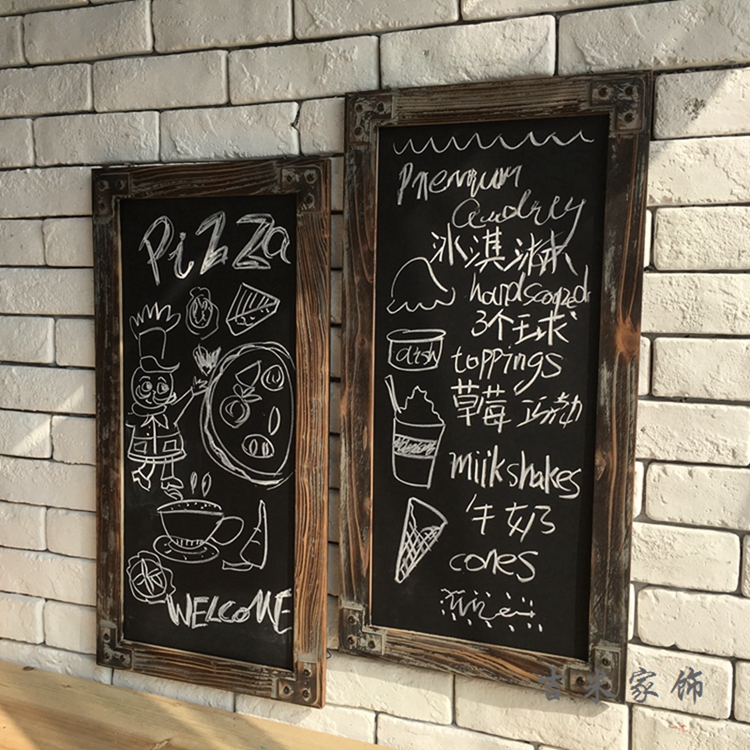 PiZZa
WELCOME
Premium
audrey
冰淇淋
handscooped
3个毛球
toppings
草莓 运动
dish
miikshakes
牛奶
cones
吉米家饰